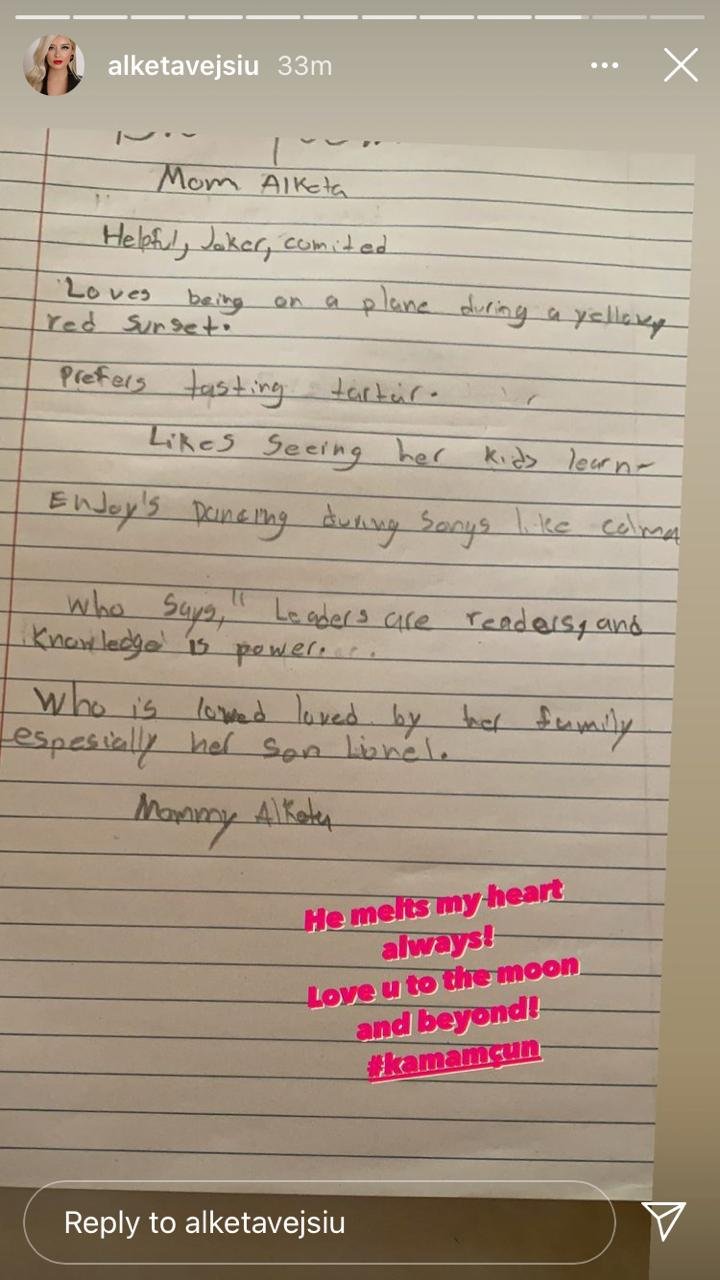 alketavejsiu 33m
Mom Alketa
Helpful, Joker, comited
Loves being on a plane during a yellowy
red sunset.
Prefers tasting tartur.
Likes seeing her kids learn
Enjoy's Dancing during songs like calma
Who says," Leaders are readers, and
Knowledge is power.
Who is lowed loved by her family
espesially her son Lionel.
Mommy Alketa
He melts my heart
always!
Love u to the moon
and beyond!
#kamamçun
Reply to alketavejsiu